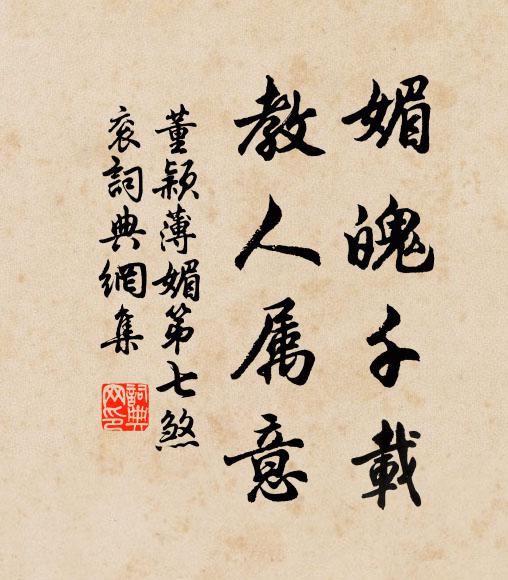 媚魄千載
教人属意
董颖薄媚第七煞
衮詞典網集
詞典网印